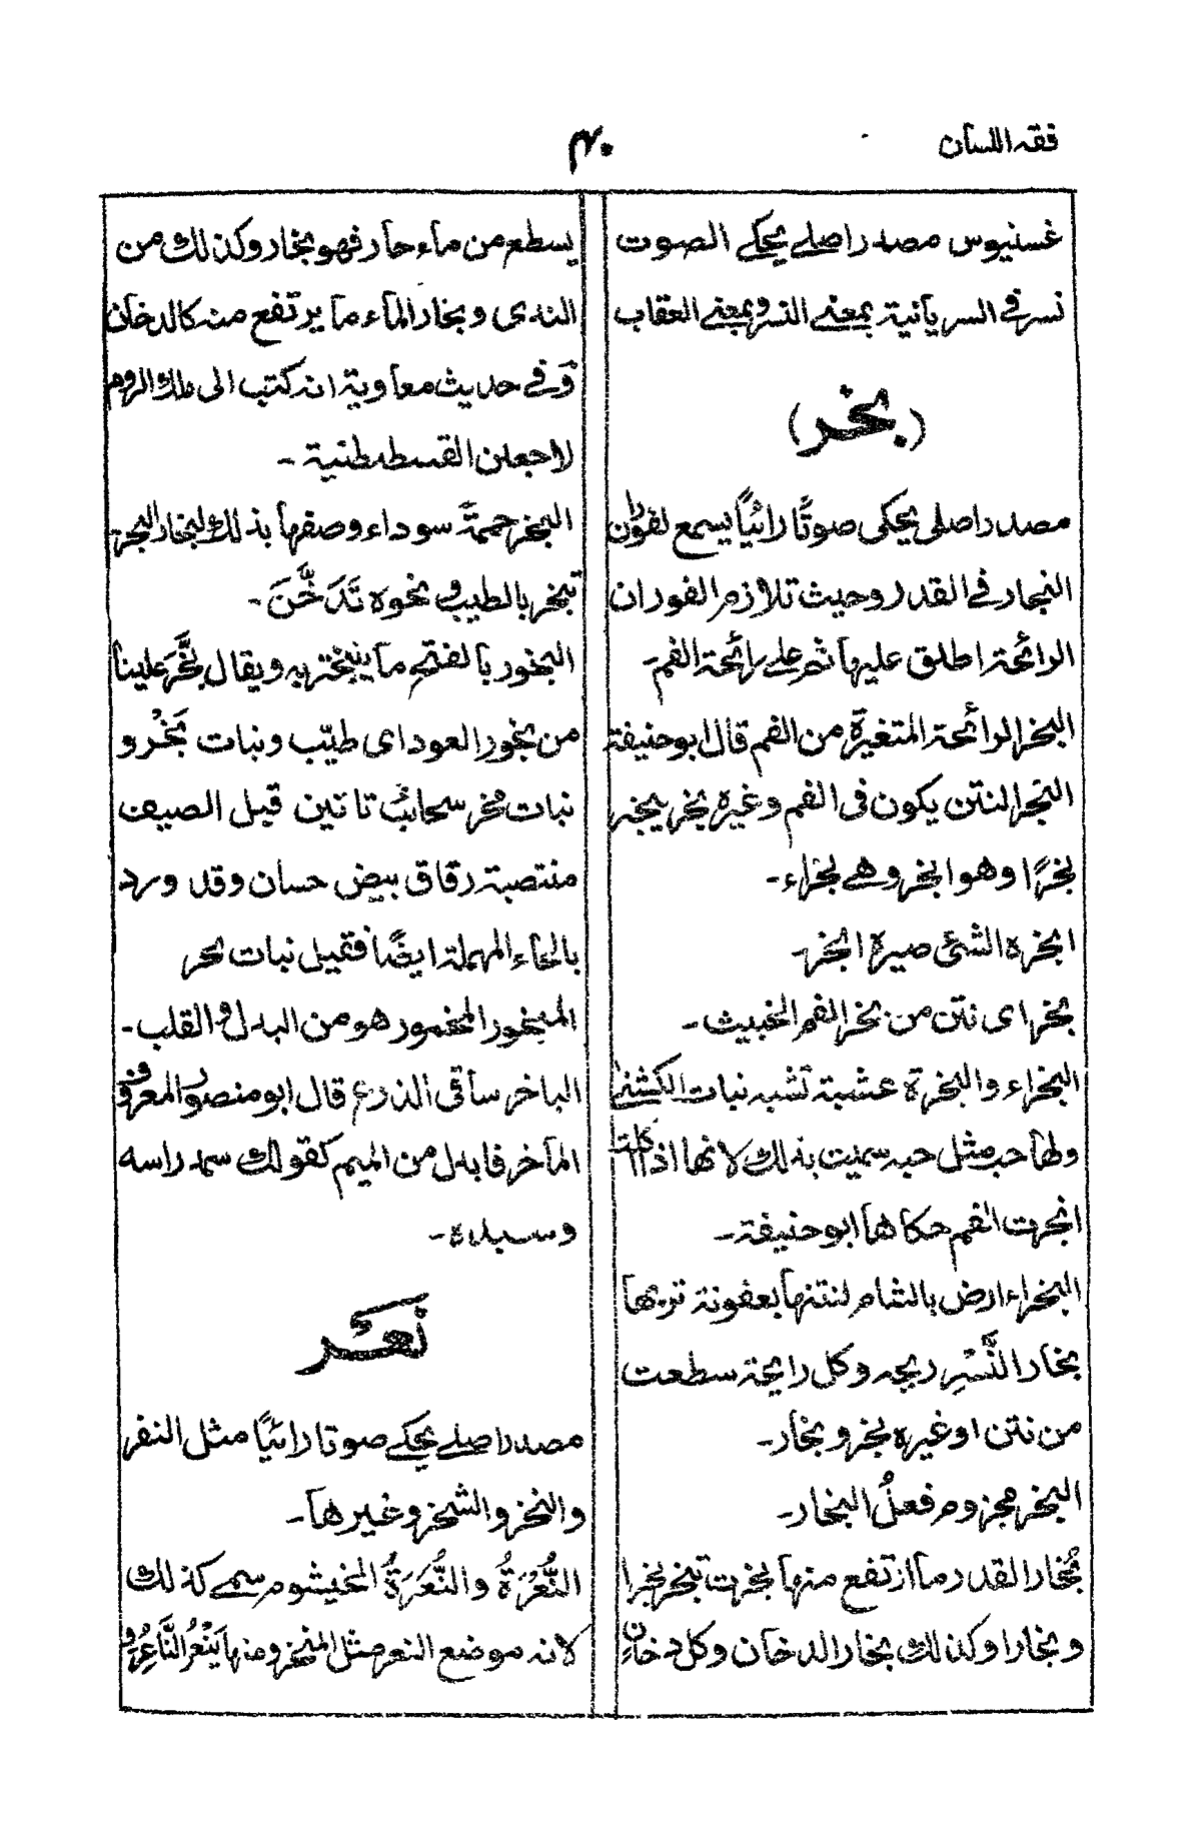 فقه اللسان
٤٠
غسنیوس مصدر اصلے یحکے الصوت
نسر فی السریانیة بمعنے النسر وبمعنے العقاب
(بخر)
مصدر اصلی یحکی صوتًا رائیًا یسمع لفوران
البخار فی القدر وحیث تلازم الفوران
الرائحة اطلق علیها ثم علے رائحة الفم۔
البخر الرائحة المتغیرة من الفم قال ابو حنیفة
البخر النتن یکون فی الفم وغیره بخر یبخر
بخرًا وهو ابخر وهے بخراء۔
ابخره الشئ صیره ابخر۔
بخر ای نتن من بخر الفم الخبیث۔
البخراء والبخرة عشبة تشبه نبات الکشنے
ولها حب مثل حبه سمیت بذلك لانها اذا اکلت
ابخرت الفم حکاها ابو حنیفة۔
البخراء ارض بالشام لنتنها بعفونة تربها
بخار النَّسْرِ ریحه وکل رایحة سطعت
من نتن او غیره بخر وبخار۔
البخر مجزوم فعلُ البخار۔
بُخار القدر ما ارتفع منها بخرت تبخر بخرا
وبخارا وکذلك بخار الدخان وکل دخانٍ
یسطع من ماء حار فهو بخار وکذلك من
الندی وبخار الماء ما یرتفع منه کالدخان
وَفی حدیث معاویة انه کتب الی ملك الروم
لاجعلن القسطنطنیة۔
البخر حممةً سوداء وصفها بذلك لبخار البحر
تبخر بالطیب ونحوه تَدَخَّنَ۔
البخور بالفتح ما یتبخر به ویقال بخَّرَ علینا
من بخور العود ای طیّب وبنات بَخْر و
بنات مخر سحائبُ تاتین قبل الصیف
منتصبة رقاق بیض حسان وقد ورد
بالحاء المهملة ایضًا فقیل بنات بحر
المبخور المخمور هو من البدل والقلب۔
الباخر ساقی الذرع قال ابو منصور المعروف
الماخر فابدل من المیم کقولك سمد راسه
وسبده۔
نَعَر
مصدر اصلے یحکے صوتا رائیًا مثل النفر
والنخر والشخر وغیرها۔
النُّعْرَةُ والنُّعَرَةُ الخیشوم سمے کذلك
لانه موضع النعر مثل المنخر ومنها یَنْعَرُ النَّاعِرُ و